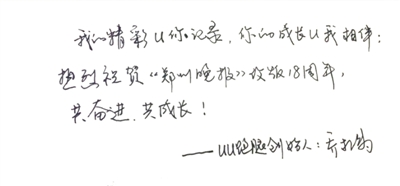 我的精彩U你记录,你的成长U我相伴:
热烈祝贺“《郑州晚报》改版18周年,
共奋进、共成长!
——UU跑腿创始人:乔松涛